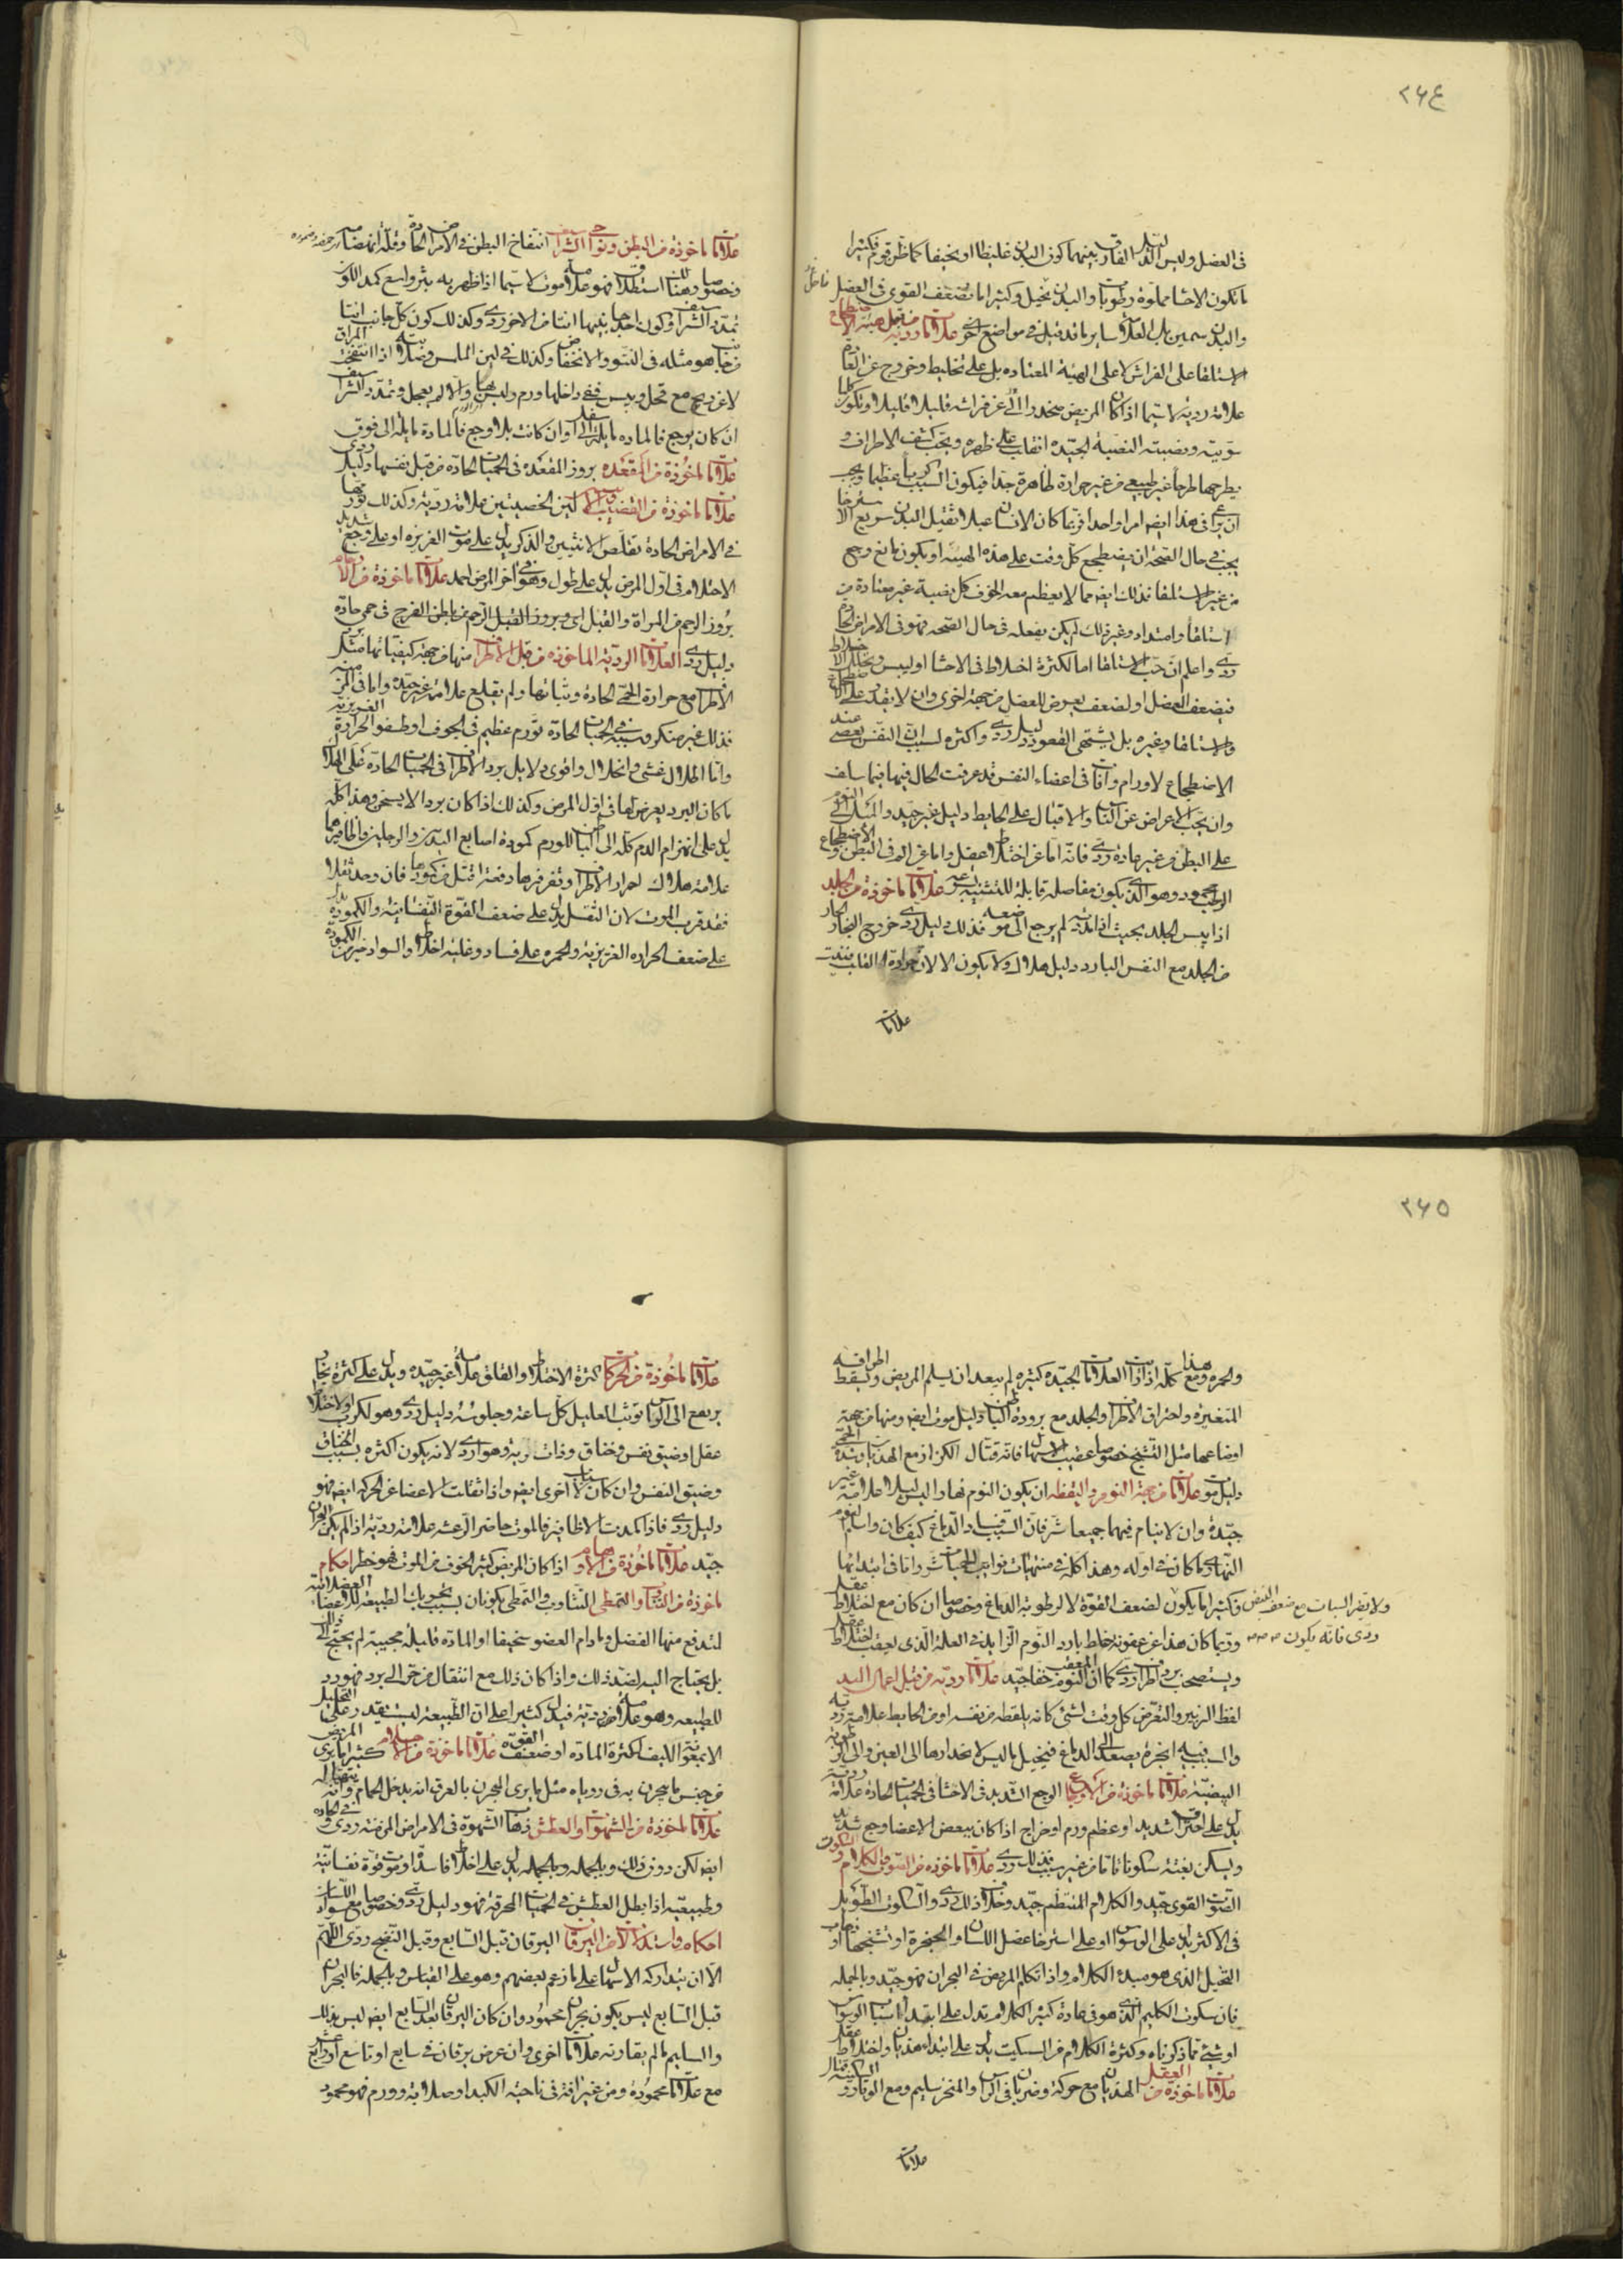 ٢٦٤
فى العضل وليس الدليل الفارق بينهما كون البدن غليظا او نحيفا كما ظن قوم فكثيرا
ما تكون الاحشا مملوة رطوبات والبدن نحيل وكثيرا ما تضعف القوى فى العضل
والبدن سمين بل العلامات ساير ما قد قيل فى مواضع اخرى علامات ردية من قبل هيئة الاضطجاع
الاستلقا على الفراش لا على الهيئة المعتاده يدل على تخليط وخروج عن العادة
علامة ردية لا سيما اذا كان المريض ينحدر دائما عن فراشه قليلا قليلا
سويته ونصبته النصبة الجيدة انقلب على ظهره ويحب كشف الاطراف و
يطرحها طرحا غير طبيعى من غير حرارة ظاهرة جدا فيكون السبب كربا عظيما ويجب
ان يراعى فى هذا ايضا امرا واحدا فربما كان الانسان عبلا ثقيل البدن سريع الاسترخا
يحب فى حال الصحة ان يضطجع كل وقت على هذه الهيئة او يكون به وجع
من غير الاستلقا فذلك ايضا مما لا يعظم معه الخوف كل نصبة غير معتادة من
استلقا وامتداد وغير ذلك لم يكن يفعله فى حال الصحة فهو فى الامراض الحادة
ردى واعلم ان حب الاستلقا اما لكثرة اخلاط فى الاحشا او ليبس وتحلل
فيضعف العضل او لضعف يعرض للعضل من جهة اخرى وان لا يقدر على الاضطجاع
والاستلقا وغيره بل يشتهى القعود دليل ردى واكثره لسبب ان النفس يعصى عند
الاضطجاع لاورام وآفات فى اعضاء النفس قد عرفت الحال فيها فيما سلف
وان يحب الاعراض عن الناس والاقبال على الحايط دليل غير جيد والميل الى النوم
على البطن من غير عادة ردى فانه اما عن اختلاط عقل واما عن الم فى البطن والاضطجاع
المحمود وهو الذى يكون مفاصله قابلة للتثنية علامات ماخوذة من الجلد
اذا يبس الجلد بحيث اذا مد لم يرجع الى موضعه فذلك دليل ردى خروج البخار الحار
من الجلد مع النفس البارد دليل هلاك ولا يكون الا لان حرارة القلب
علامات
علامات ماخوذة من البطن ونواحى الشراسيف انتفاخ البطن فى الامراض الحادة وقلة انهضامه
وخصوصا وهناك استطلاق فهو علامة موت لا سيما اذا ظهر به بثر واسع كمد اللون
تمدد الشراسيف وكون احد جانبيها انتا من الاخر ردى وكذلك كون كل جانب انتا
من جانب هو مثله فى النتو والانخفاض وكذلك فى لين الملمس وصلابته المراق اذا انتفخت
لا عن ريح مع قحل ويبس ففى داخلها ورم وليس بها والا لم يعجل وتمدد الشراسيف
ان كان بوجع فالماده مايلة الى اسفل وان كانت بلا وجع فالمادة مايلة الى فوق
علامات ماخوذة من المقعده بروز المقعده فى الحميات الحاده من قبل نفسها دليل ردى
علامات ماخوذة من القضيب لين الخصيتين علامة ردية وكذلك تورمها
فى الامراض الحادة تقلص الانثيين والذكر يدل على موت الغريزه او على وجع شديد
الاحتلام فى اول المرض يدل على طول وهو فى اخر المرض احمد علامات ماخوذة من الارحام
بروز الرحم من المراة والقبل اى وبروز القبل الرحم من باطن الفرج فى حمى حادة
دليل ردى العلامات الردية الماخوذه من قبل الاطراف منها من جهة كيفياتها مثل برد
الاطراف مع حرارة الحمى الحادة وثباتها ولم يقلع علامة غير جيدة واما فى المزمنه
فذلك غير منكر وسببه فى الحميات الحادة تورم عظيم فى الجوف او طفو الحرارة الغريزيه
واما انحلال غشى وانحلال واقوى دلايل برد الاطراف فى الحميات الحادة على الهلاك
ما كان البرد يعرض لها فى اول المرض وكذلك اذا كان بردا لا يسخن وهذا كله
يدل على انهزام الدم كله الى الباطن للورم كمودة اصابع اليدين والرجلين واظافيرها
علامة هلاك احمرار الاطراف وتفرفرها دفعة اقتل من كمودتها فان وجد ثقلا
فقد قرب الموت لان الثقل يدل على ضعف القوة النفسانية والكمودة يدل
على ضعف الحراره الغريزية والحمره على فساد وغلبة اخلاط والسواد خير من الكمودة
٢٦٥
والحمره ومع هذا كله اذا رايت العلامات الجيده كثيره لم يبعد ان يسلم المريض ويسقط اطرافه
المتغيرة واحتراق الاطراف والجلد مع برودة الباطن دليل موت ايضا ومنها من جهة
اوضاعها مثل التشنج خصوصا عقيب الاسهال فانه قتال الكزاز مع الهذيان وشدة الحمى
دليل موت علامات من جهة النوم واليقظة ان يكون النوم نهارا ليس ليلا علامة غير
جيدة وان لا ينام فيهما جميعا شر فان السبب فساد الدماغ كيف كان واسلم نوم
النهار ما كان فى اوله وهذا كله فى منتهيات نوايب الحميات شر واما فى ابتدائها
ولا يضر السبات مع ضعف النبض
فكثيرا ما يكون لضعف القوة لا لرطوبة الدماغ وخصوصا ان كان مع اختلاط عقل
ردى فانه يكون
وربما كان هذا عن عفونة خلط بارد النوم الزايد فى العلة الذى يعقب اختلاط عقل
ويستصحب برد اطراف ردى كما ان النوم المعقب خفا جيد علامات ردية من قبل اعمال اليد
لقط الزيبر والتعرض كل وقت لشئ كانه يلقطه من نفسه او من الحايط علامة ردية
والسبب فيه ابخرة يصعد الى الدماغ فيتخيل ما ليس لانحدارها الى العين والى الرطوبة
البيضية علامات ماخوذه من الاوجاع الوجع الشديد فى الاحشا فى الحميات الحادة علامة ردية
يدل على احتراق شديد او عظم ورم او خراج اذا كان ببعض الاعضا وجع شديد
ويسكن بغتة سكونا تاما من غير سبب فذلك ردى علامات ماخوذه من الصوت والكلام والسكوت
الصوت القوى جيد والكلام المنتظم جيد وخلاف ذلك ردى والسكوت الطويل
فى الاكثر يدل على الوسواس او على استرخا عضل اللسان والحنجرة او تشنجهما او ذهاب
التخيل الذى هو مبدء الكلام واذا تكلم المريض فى البحران فهو جيد وبالجملة
فان سكوت الكليم الذى هو فى عادة كثير الكلام تدل على ابتداء اسباب الوسواس
او شئ مما ذكرناه وكثرة الكلام من السكيت يدل على ابتداء هذيان واختلاط عقل
علامات ماخوذه من العقل الهذيان مع حركة وضربان فى الراس والمنخر سليم ومع الوقار
علامات
علامات ماخوذة من الحركات كثرة الاختلاط والقلق علامة غير جيده ويدل على كثرة بخار
يرتفع الى الراس توثب العليل كل ساعة وجلوسه دليل ردى وهو لكرب او لاختلاط
عقل او ضيق نفس وخناق وذات رية وهو اردى لانه يكون اكثره بسبب الخناق
وضيق النفس وان كان لاسباب اخرى ايضا واذا ثقلت الاعضا عن الحركه ايضا فهو
دليل ردى فاذا كمدت الاظافير فالموت حاضر الرعشه علامة ردية اذا لم يكن بحران
جيد علامات ماخوذة من الاوهام اذا كان المريض كثير الخوف من الموت فهو خطر احكام
ماخوذة من التثاوب والتمطى التثاوب والتمطى يكونان بسبب تحريك الطبيعة للاعضاء العضلانية
لتدفع منها الفضل وما دام العضو سخيفا او المادة قليلة مجيبة لم يحتج الى ذلك
بل يحتاج اليه لضد ذلك واذا كان ذلك مع انتقال من حر الى برد فهو ردى
للطبيعه وهو علامة ردية فيدل كثيرا على ان الطبيعة ليست يقدر على التحليل
الا بمعونة الليف لكثرة الماده او ضعف القوة علامات ماخوذة من الاحلام كثيرا ما يرى المريض
من جنس ما يبحرن به فى روياه مثل ما يرى المبحرن بالعرق انه يدخل الحمام وانه يتهيا له
علامات ماخوذة من الشهوات والعطش ذهاب الشهوة فى الامراض المزمنة ردى وفى الحاده
ايضا لكن دون ذلك وبالجمله يدل على اخلاط فاسدة او موت قوة نفسانية
وطبيعية اذا بطل العطش فى الحميات المحرقة فهو دليل ردى وخصوصا مع سواد اللسان
احكام واستدلالات من اليرقان اليرقان قبل السابع وقبل النضج ردى اللهم
الا ان يتداركه الاسهال على ما زعم بعضهم وهو على القياس وبالجملة فالبحران
قبل السابع ليس يكون بحران محمود وان كان اليرقان بعد السابع ايضا ليس بذلك
والسليم ما لم يقارنه علامات اخرى وان عرض يرقان فى سابع او تاسع او رابع عشر
مع علامات محمودة ومن غير آفة فى ناحية الكبد او صلابة وورم فهو محمود